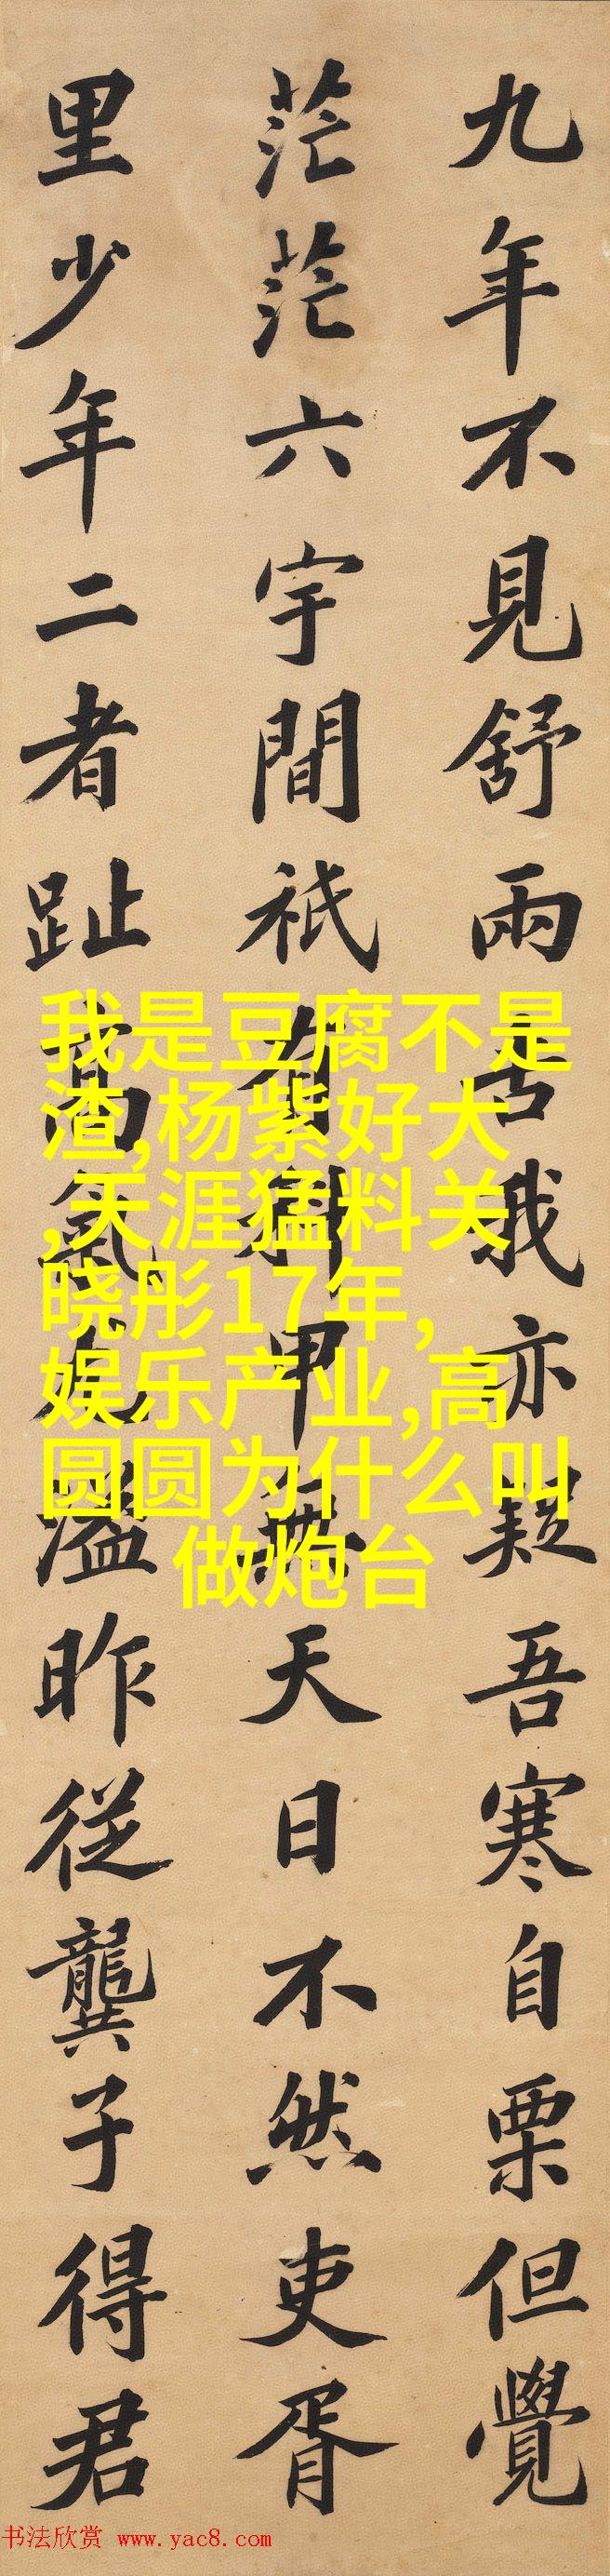 九年不見舒雨我亦疑吾寒自栗但覺
茫茫六宇間祇有科甲無天日不然吏胥
里少年二者趾高氣溢昨從龔子得君
我是豆腐不是
渣,杨紫好大
,天涯猛料关
晓彤17年,
娱乐产业,高
圆圆为什么叫
做炮台
书法欣赏 www.yac8.com